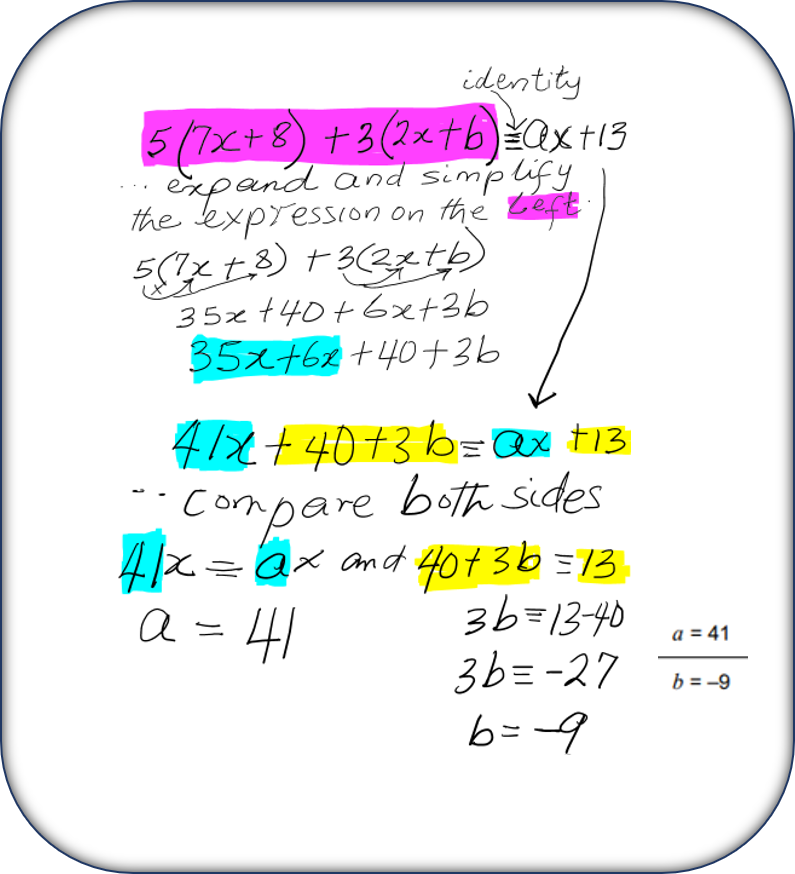 identity
5(7x+8) +3(2x+b)≡ax+13
... expand and simplify
the expression on the left.
5(7x+8) +3(2x+b)
35x+40+6x+3b
35x+6x+40+3b
41x+40+3b≡ax +13
... compare both sides
41x=ax and 40+3b≡13
a = 41
3b≡13-40
3b≡-27
b=-9
a = 41
b = –9